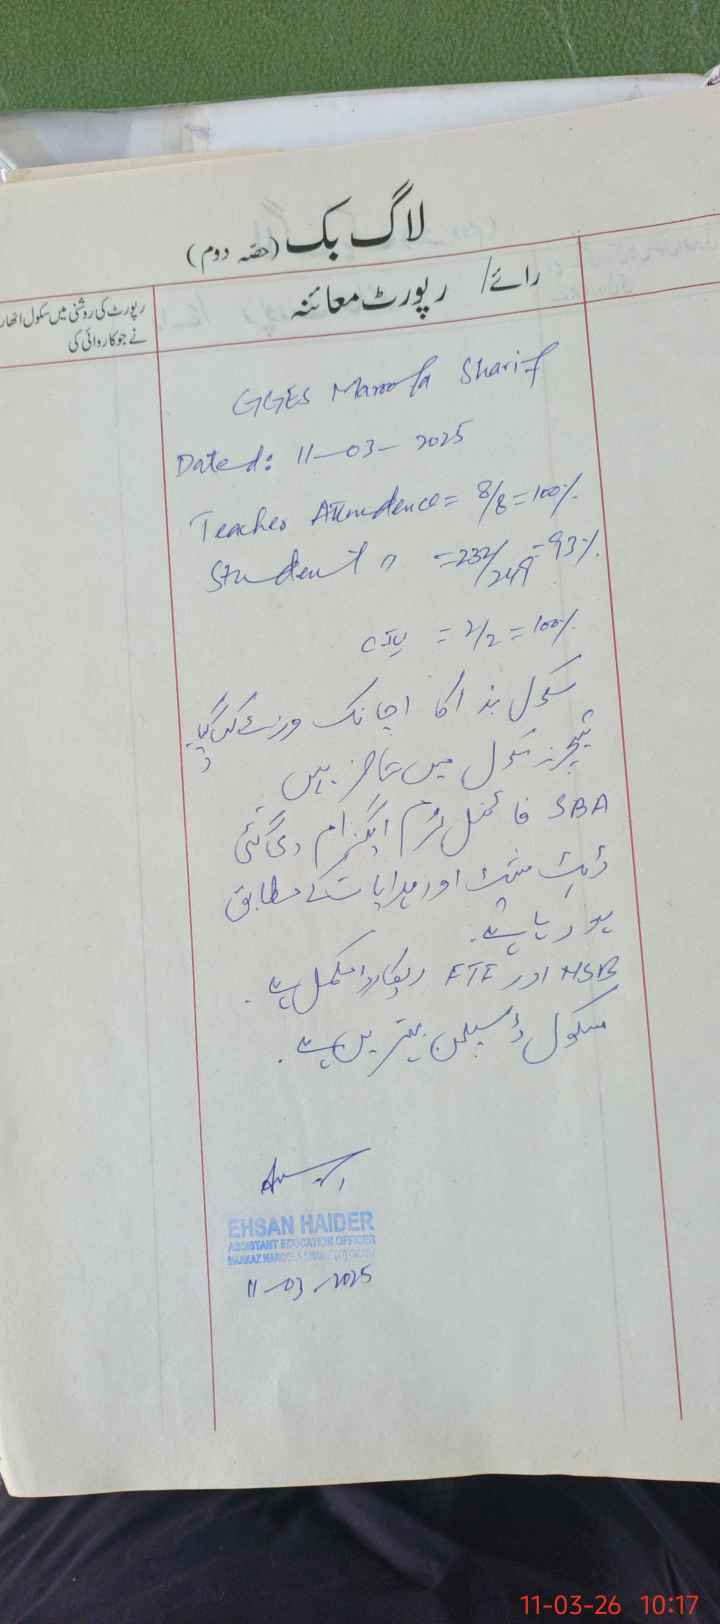 لاگ بک (حصّہ دوم)
رائے/ رپورٹ معائنہ
رپورٹ کی روشنی میں سکول
نے جو کاروائی کی
GGES Maroofa Sharif
Dated: 11-03-2025
Teacher Attendence = 8/8 = 100%
Student 〃 = 232/249 = 93%
= 2/2 = 100%
سکول ہذا کا اچانک وزٹ کیا گیا
ٹیچرز سکول میں حاضر ہیں
SBA فائنل ٹرم ایگزام دی گئی
ڈیٹ شیٹ اور ہدایات کے مطابق
ہو رہا ہے.
NSB اور FTF ریکارڈ مکمل ہے.
سکول ڈسپلن بہترین ہے.
EHSAN HAIDER
ASSISTANT EDUCATION OFFICER
MARKAZ
11-03-2025
11-03-26 10:17